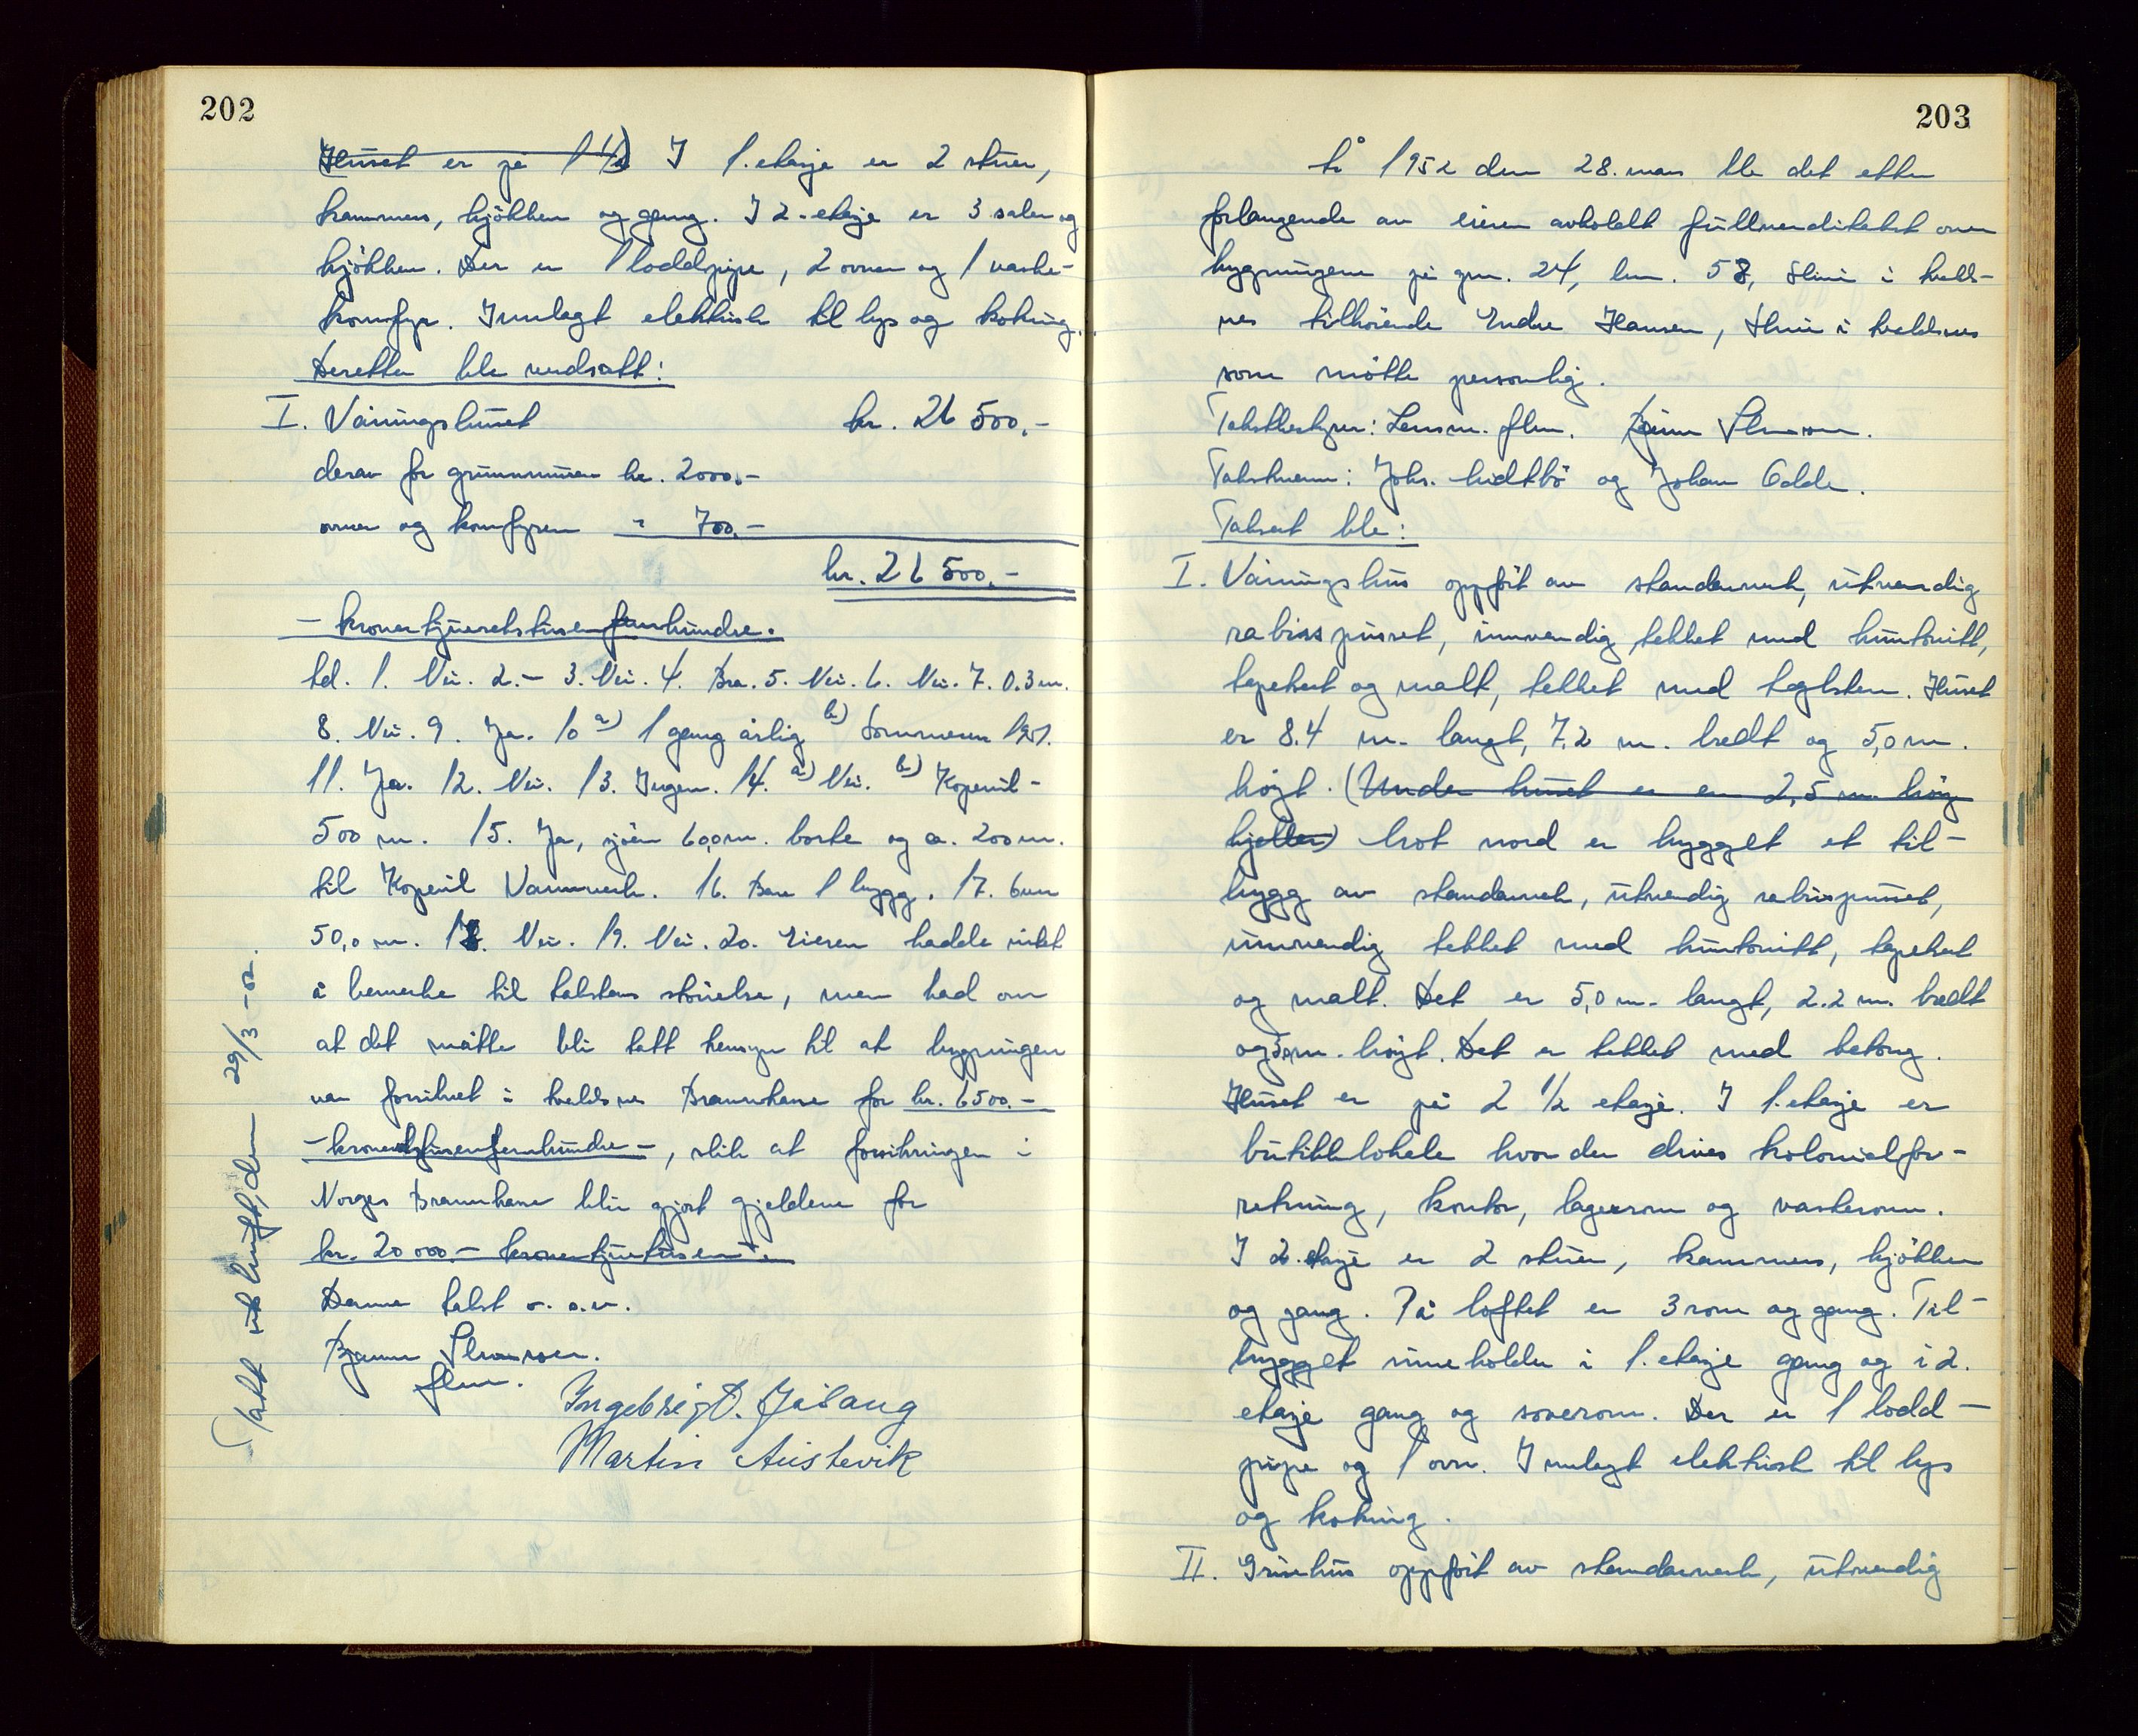 202
(Huset er på 1 ½) I 1. etasje er 2 stuer,
kammers, kjökken og gang. I 2. etasje er 3 saler og
kjökken. Der er 1 loddpipe, 2 ovner og 1 vaske-
komfyr. Innlagt elektrisk til lys og koking.
Deretter ble verdsatt:
I. Våningshuset kr. 26 500.-
derav for grunnmuren kr. 2000.-
ovner og komfyren " 700.-
kr. 26 500.-
- kronertjuesekstusenfemhundre.
1. Nei. 2.- 3. Nei. 4. Bra. 5. Nei. 6. Nei. 7. 0.3 m.
8. Nei. 9. Ja. 10 a) 1 gang årlig b) Sommeren 1951.
11. Ja. 12. Nei. 13. Ingen. 14. a) Nei. b) Kopervik-
500 m. 15. Ja, sjöen 60,0 m. borte og ca. 200 m.
til Kopervik Vannverk. 16. Bare 1 bygg. 17. Over
50,0 m. 18. Nei. 19. Nei. 20. Eieren hadde intet
å bemerke til takstens störrelse, men bad om
at det måtte bli tatt hensyn til at bygningen
var forsikret i Avaldsnes Brannkasse for kr. 6500.-
- kronersekstusenfemhundre -, slik at forsikringen i
Norges Brannkasse blir gjort gjeldene for
kr. 20 000.- kronertjuetusen -.
Denne takst o. s. v.
Bjarne Simonsen.
flm.
Ingebrigt D. Jåsang
Martin Austevik
Takt utskrift, den 29/3 -52.
203
År 1952 den 28. mars ble det etter
forlangende av eieren avholdt fullverditakst over
bygningene på gnr. 24, bnr. 58, i Avalds-
nes tilhörende Endre Hansen, i Avaldsnes
som mötte personlig.
Takstbestyrer: Lensm. flm. Bjarne Simonsen.
Takstmenn: Johs. Midtbö og Johan Odde.
Taksert ble:
I. Våningshus oppfört av standerverk, utvendig
rabisspusset, innvendig tekket med huntonitt,
tapetsert og malt, tekket med taksten. Huset
er 8.4 m. langt, 7.2 m. bredt og 5,0 m.
höyt. (Under huset er en 2,5 m. höy
kjeller) Mot nord er bygget et til-
bygg av standerverk, utvendig rabisspusset,
innvendig tekket med huntonitt, tapetsert
og malt. Det er 5,0 m. langt, 2.2 m. bredt
og 5,0 m. höyt. Det er tekket med betong.
Huset er på 2 ½ etasje. I 1. etasje er
butikklokale hvor der drives kolonialfor-
retning, kontor, lagerrom og vaskerom.
I 2. etasje er 2 stuer, kammers, kjökken
og gang. På loftet er 3 rom og gang. Til-
bygget inneholder i 1. etasje gang og i 2.
etasje gang og soverom. Der er 1 lodd-
pipe og 1 ovn. Innlagt elektrisk til lys
og koking.
II. Grisehus oppfört av standerverk, utvendig